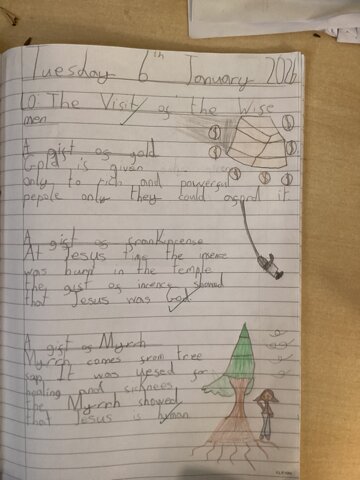 Tuesday 6th January 2026
LO: The Visit of the Wise
men
A gift of gold
Gold is given
only to rich and powerful
pepole only they could agord it
A gift of frankincense
At Jesus time the insence
was burnt in the temple
the gist of incence showed
that Jesus was God
A gift of Myrrh
Myrrh comes from tree
sap It was yesed for
healing and sickness
the Myrrh showed
that Jesus is human